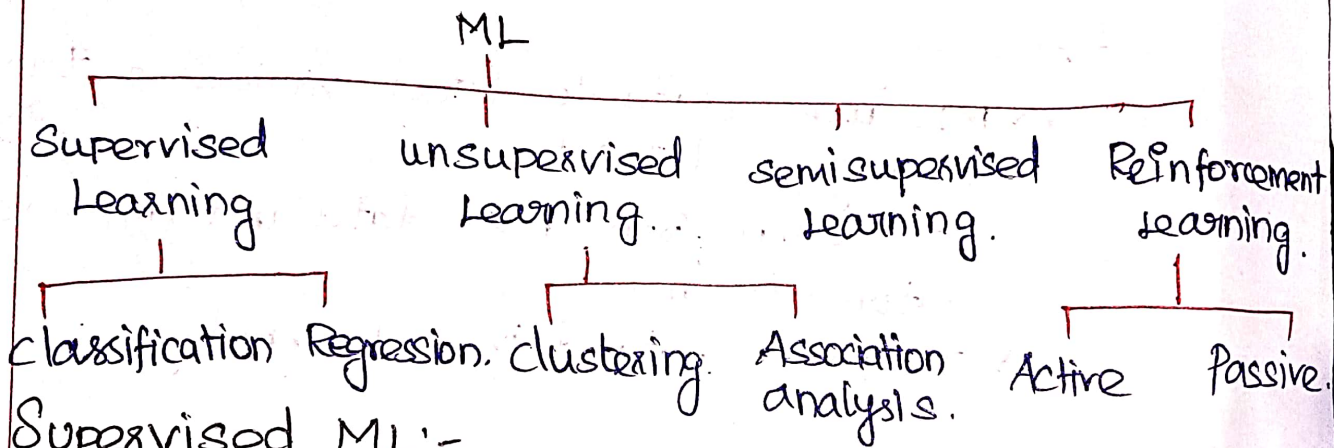 ML
Supervised
Learning
unsupervised
Learning...
semisupervised
Learning.
Reinforcement
Learning.
classification Regression. clustering. Association
analysis.
Active Passive.
Supervised ML:-